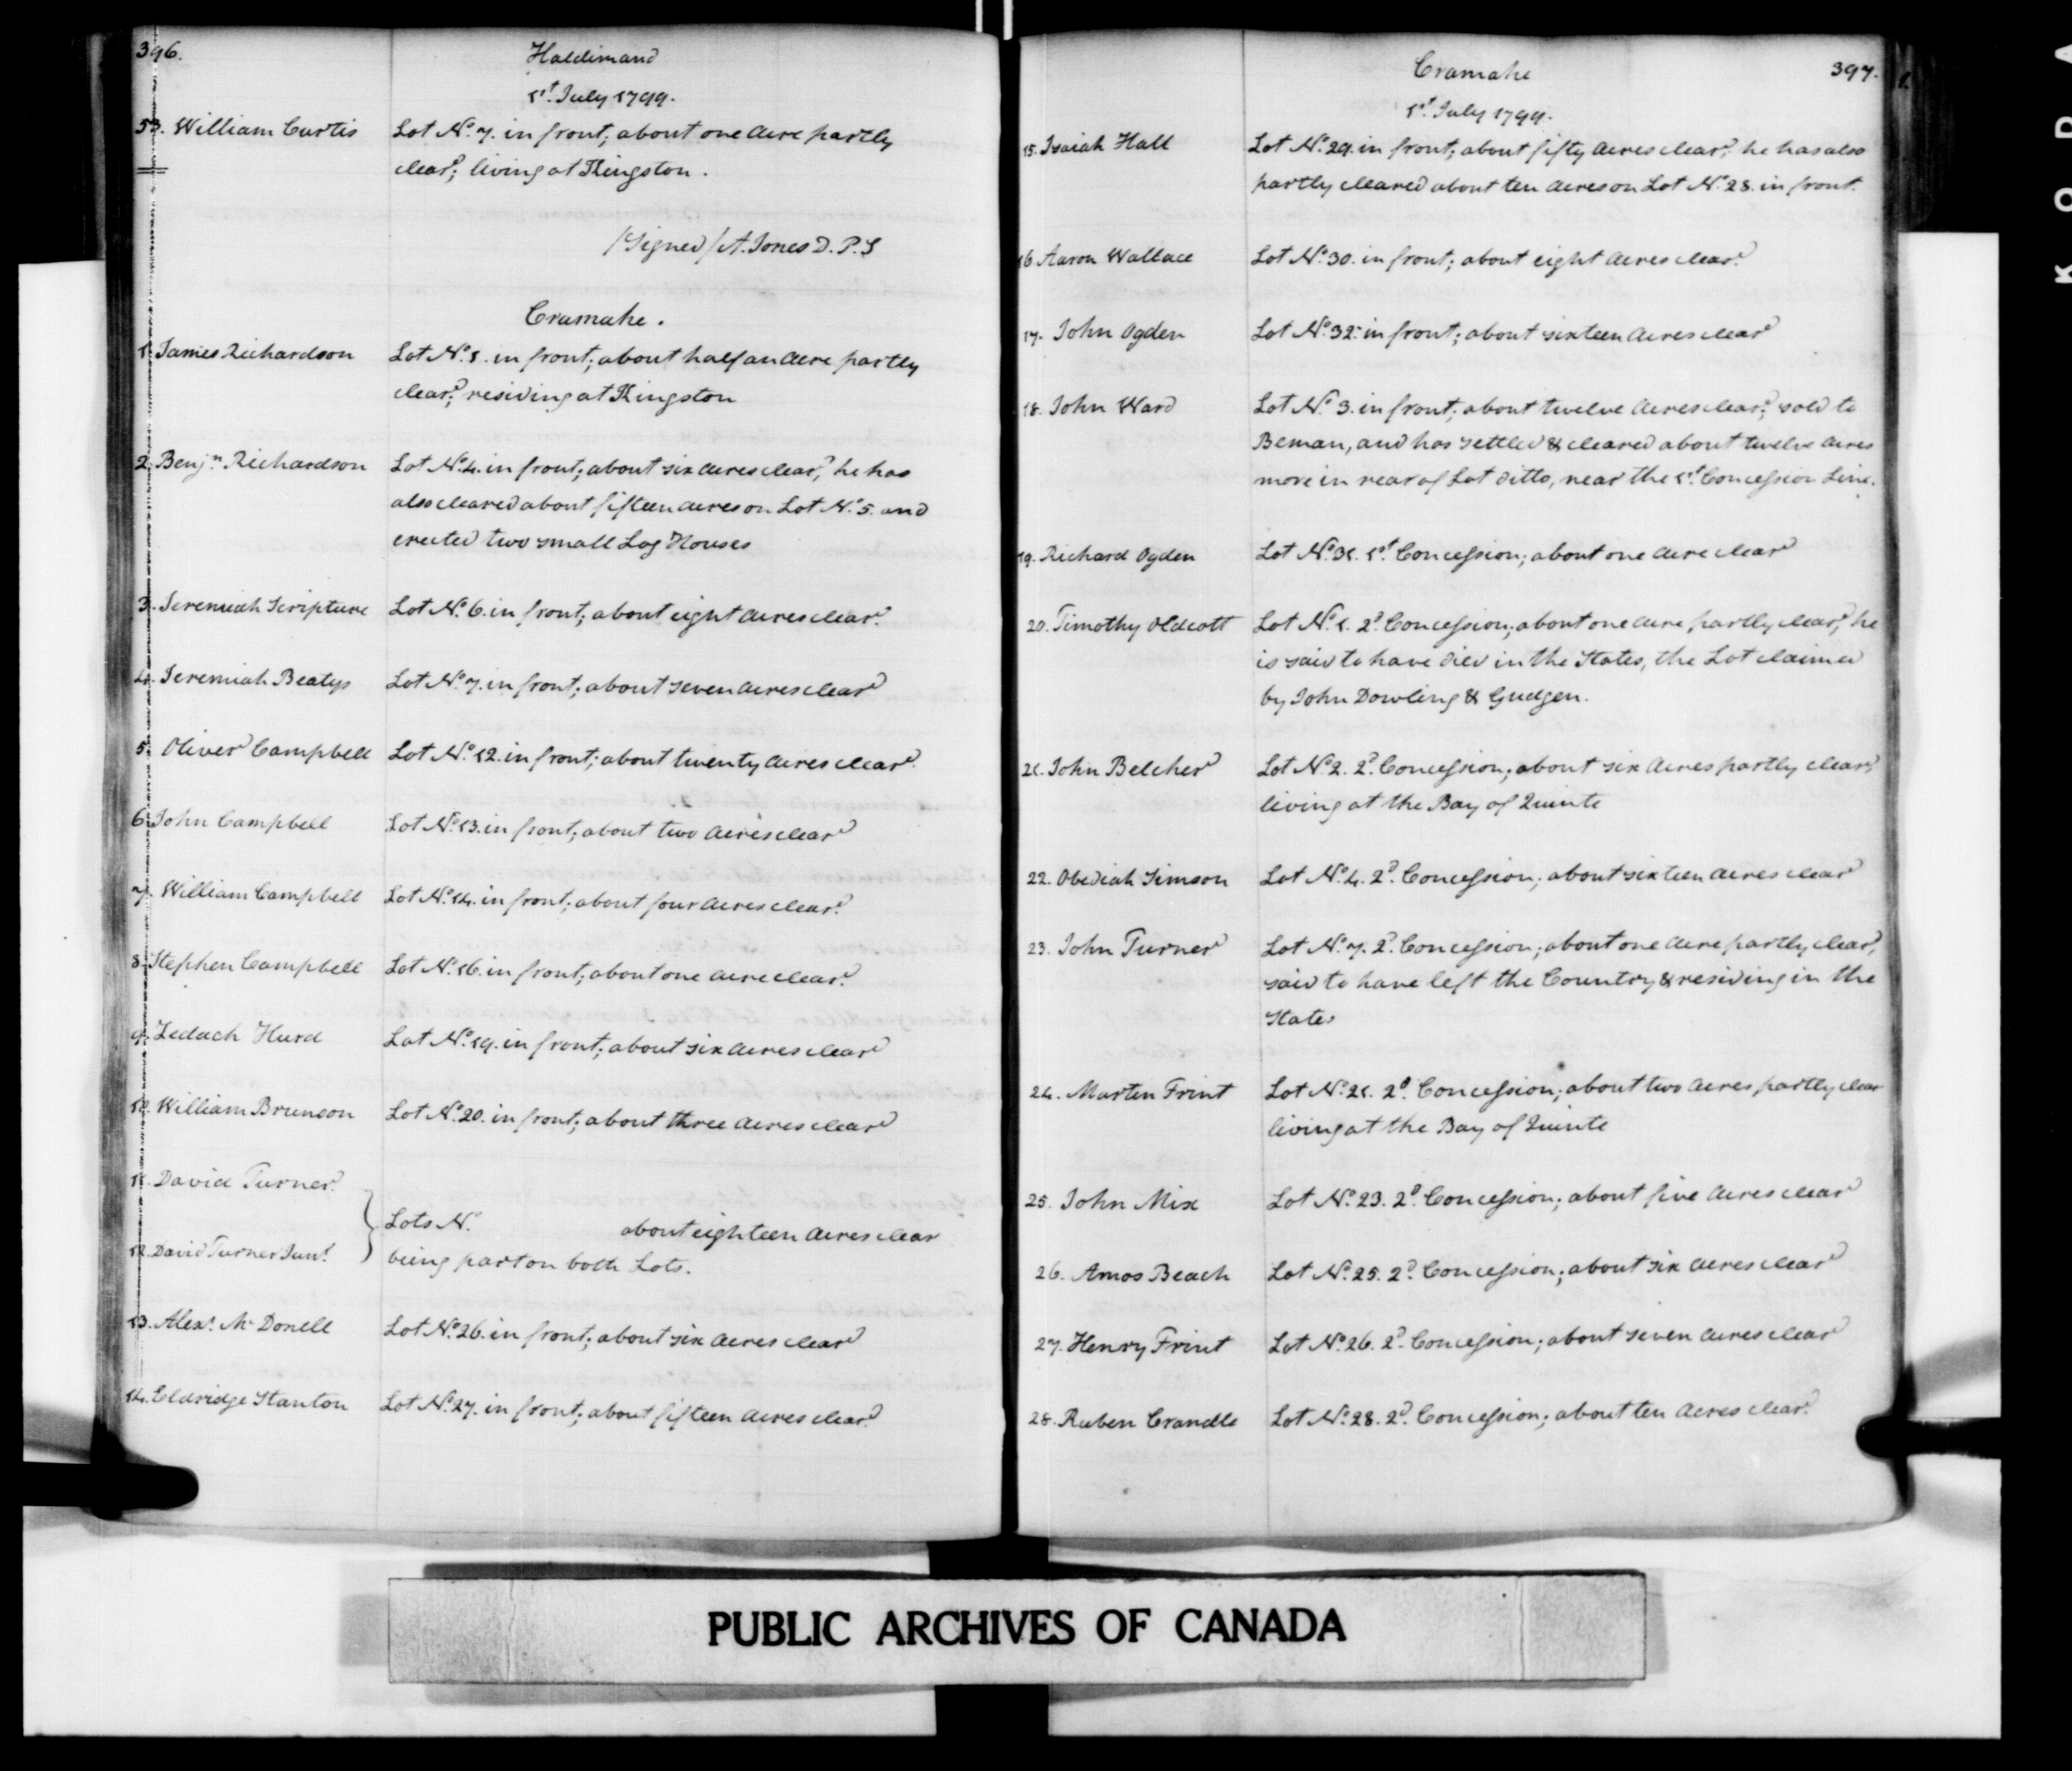 396.
Haldimand
1st. July 1799.
53. William Curtis Lot No. 7. in front; about one Acre partly
clear'd; living at Kingston.
/Signed/ A. Jones D. P. S
Cramahe.
1. James Richardson Lot No. 1. in front; about half an Acre partly
clear'd; residing at Kingston
2. Benjn. Richardson Lot No. 4. in front; about six Acres clear'd, he has
also cleared about fifteen Acres on Lot No. 5. and
erected two small Log Houses
3. Jeremiah Scripture Lot No. 6. in front; about eight Acres clear'd.
4. Jeremiah Beatys Lot No. 7. in front; about seven Acres clear'd
5. Oliver Campbell Lot No. 12. in front; about twenty Acres clear'd.
6. John Campbell Lot No. 13. in front; about two Acres clear'd
7. William Campbell Lot No. 14. in front; about four Acres clear'd.
8. Stephen Campbell Lot No. 16. in front; about one Acre clear'd.
9. Zedach Hurd Lot No. 19. in front; about six Acres clear'd
10. William Brunson Lot No. 20. in front; about three Acres clear'd
11. David Turner
Lots No. about eighteen Acres clear
12. David Turner Junr. being part on both Lots.
13. Alexr. Mc Donell Lot No. 26. in front; about six Acres clear'd
14. Eldridge Stanton Lot No. 27. in front; about fifteen Acres clear'd.
Cramahe
397.
1st. July 1799.
15. Isaiah Hall Lot No. 29. in front; about fifty Acres clear'd. he has also
partly cleared about ten Acres on Lot No. 28. in front.
16. Aaron Wallace Lot No. 30. in front; about eight Acres clear'd.
17. John Ogden Lot No. 32. in front; about sixteen Acres clear'd
18. John Ward Lot No. 3. in front; about twelve Acres clear'd; sold to
Beman, and has settled & cleared about twelve Acres
more in rear of Lot ditto, near the 1st. Concession Line.
19. Richard Ogden Lot No. 31. 1st. Concession; about one Acre clear'd
20. Timothy Oldcott Lot No. 1. 2d. Concession; about one Acre partly clear'd, he
is said to have died in the States, the Lot claimed
by John Dowling & Gudgen.
21. John Belcher Lot No. 2. 2d. Concession; about six Acres partly clear'd,
living at the Bay of Quinte
22. Obediah Simson Lot No. 4. 2d. Concession; about sixteen Acres clear'd
23. John Turner Lot No. 7. 2d. Concession; about one Acre partly clear'd,
said to have left the Country & residing in the
States
24. Marten Frint Lot No. 21. 2d. Concession; about two Acres partly clear
living at the Bay of Quinte
25. John Mix Lot No. 23. 2d. Concession; about five Acres clear'd
26. Amos Beach Lot No. 25. 2d. Concession; about six Acres clear'd
27. Henry Frint Lot No. 26. 2d. Concession; about seven Acres clear'd
28. Ruben Crandle Lot No. 28. 2d. Concession; about ten Acres clear'd.
PUBLIC ARCHIVES OF CANADA